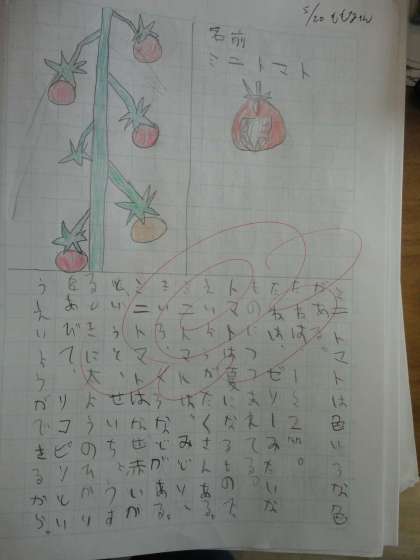 5/20
名前
ミニトマト
ミニトマトは色いろな色
がある。
たねは、1~2㎜。
たねは、ゼリーみたいな
ものにつつまれてる。
トマトは夏になるもので
えいようがたくさんある。
ミニトマトは、みどり、
きいろ、くろなどがある。
ミニトマトはなぜ赤いか
というと、せいちょうす
るときに太ようのひかり
をあびて、リコピンとい
うえいようができるから。